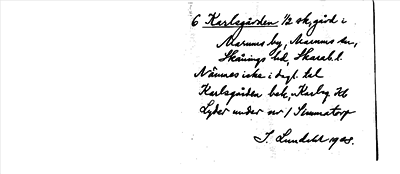 6 Karlsgården 1/2 sk, gård i
Marums by, Marums sn,
Skånings hd, Skarab. l.
Nämnes icke i dagl. tal
Karlsgården bok, Karlsg Hb
Lyder under nr 1 Simmatorp
I. Lundahl 1908.